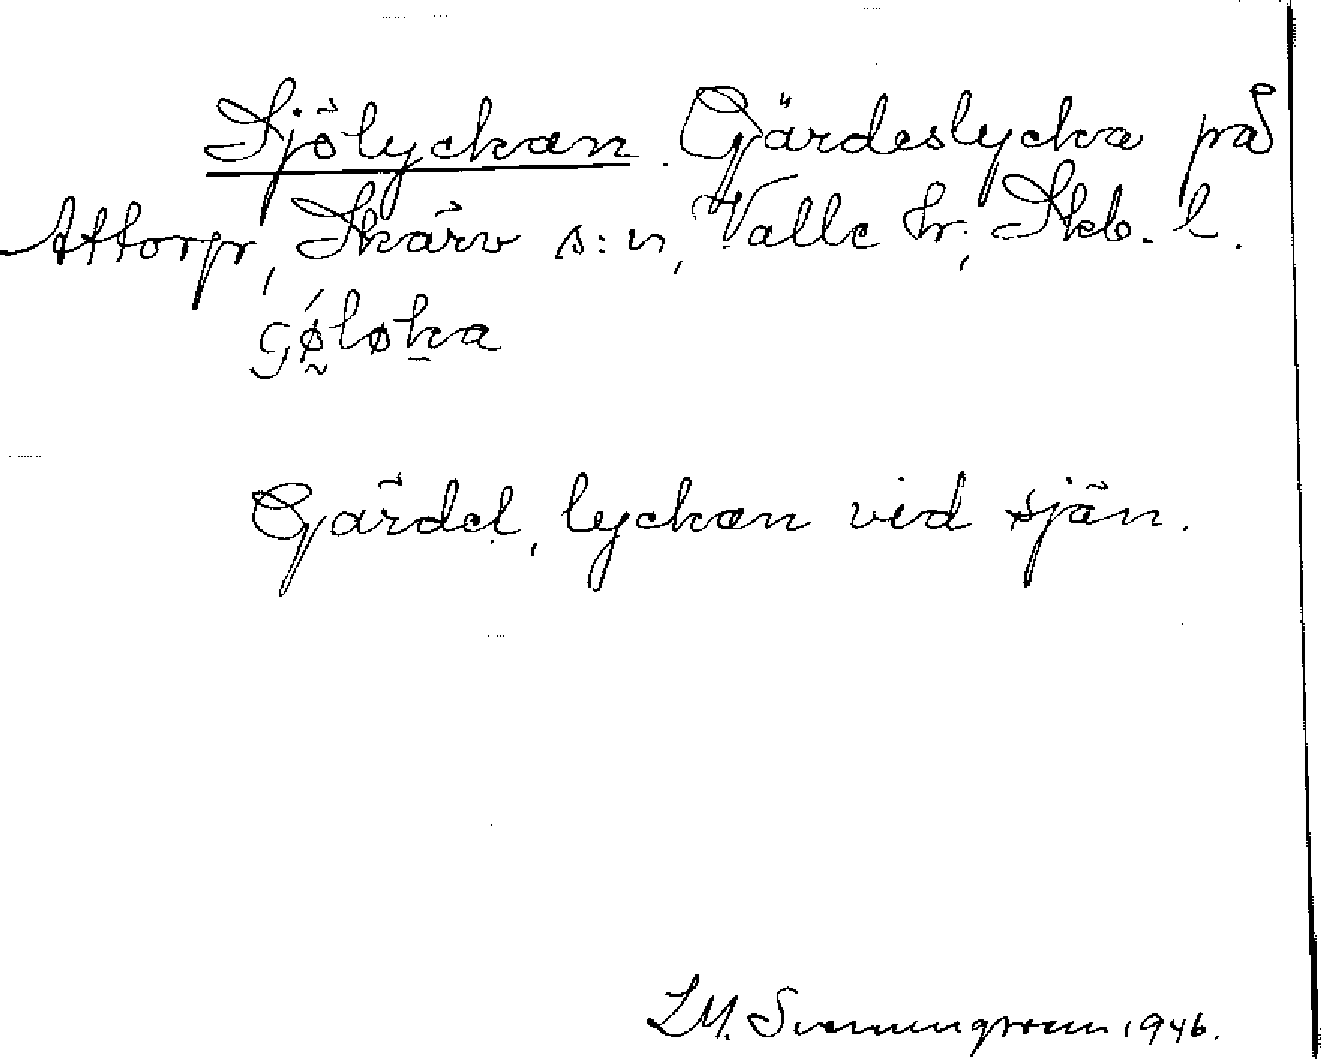 Sjölyckan. Gärdeslycka på
Attorp, Skärv s:n, Valle hr, Skb. l.
gǿ̰løka
Gärdel, lyckan vid sjön.
LM. Svenungsson 1946.